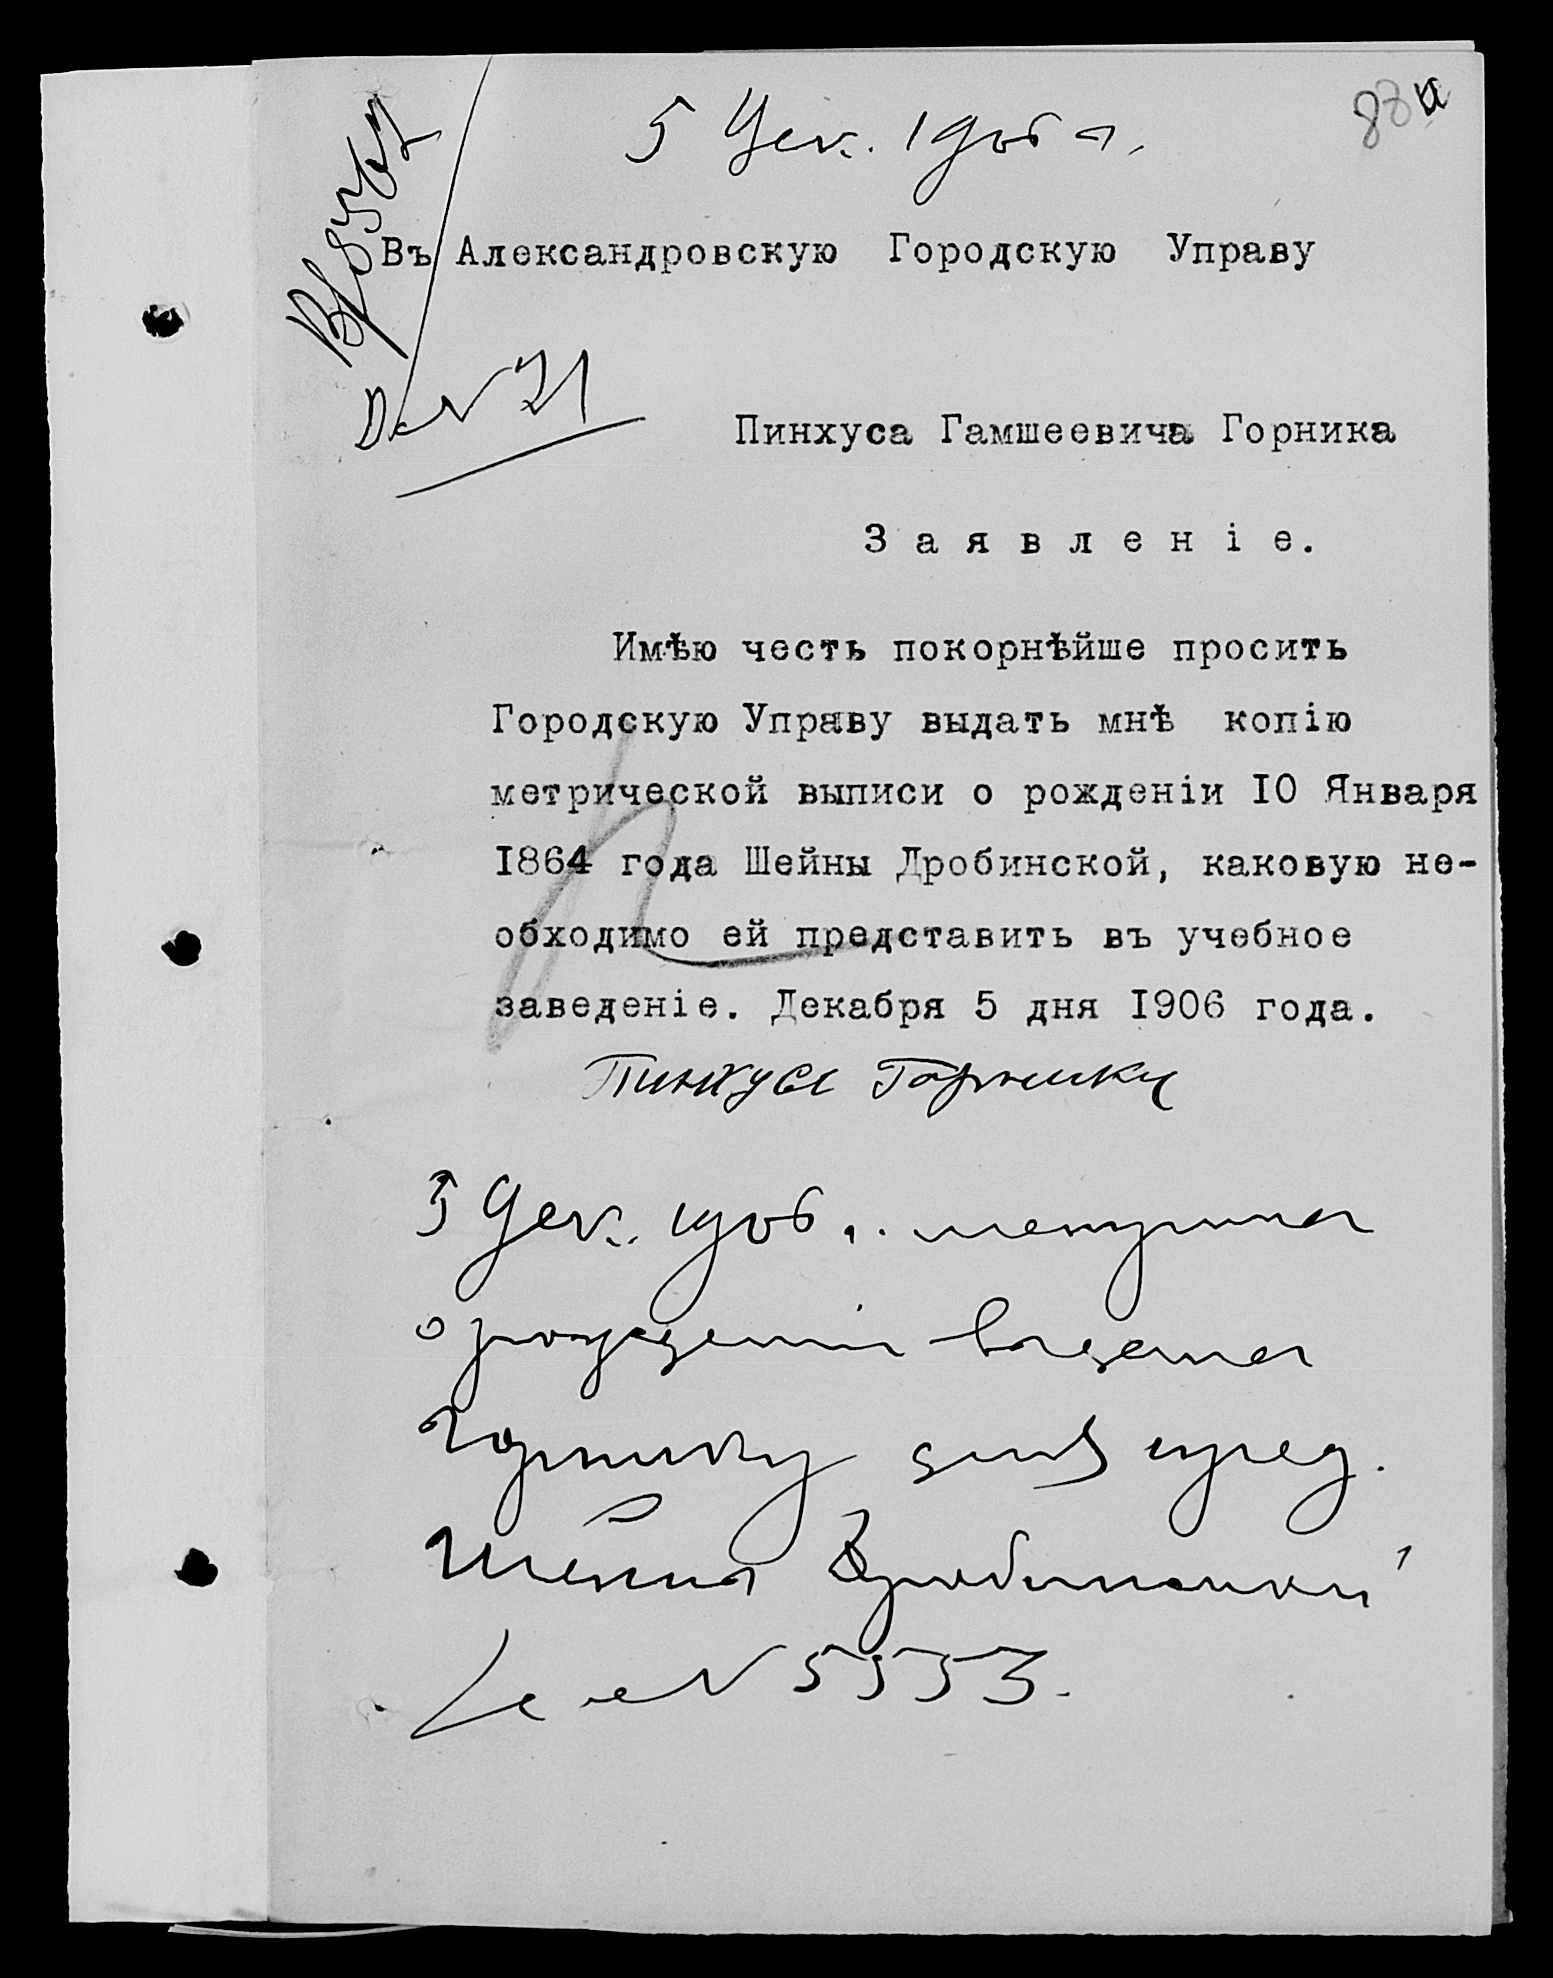 88а
5 Дек. 1906 г.
Въ Александровскую Городскую Управу
Д. № 21
Пинхуса Гамшеевича Горника
Заявленіе.
Имѣю честь покорнѣйше просить
Городскую Управу выдать мнѣ копію
метрической выписи о рожденіи 10 Января
1864 года Шейны Дробинской, каковую не-
обходимо ей представить въ учебное
заведеніе. Декабря 5 дня 1906 года.
Пинхусъ Горникъ
5 Дек. 1906 г. метрика
о рожденіи выдана
Горнику для перед.
Шейна Дробинской
№ 5553.